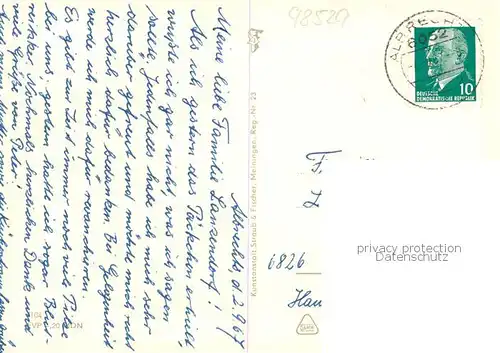 Albrechts, d. 2.9.67
Meine liebe Familie Lanzendorf!
Als ich gestern das Päckchen erhielt,
wußte ich gar nicht, was ich sagen
sollte. Jedenfalls habe ich mich sehr
darüber gefreut und möchte mich recht
herzlich dafür bedanken. Bei Gelegenheit
werde ich mich dafür revanchieren.
Es gibt zur Zeit immer noch viel Pilze
bei uns, gestern hatte ich sogar Blut-
reitzker. Nochmals herzlichen Dank und
viele Grüße von Peter
Kunstanstalt Straub & Fischer, Meiningen, Reg.-Nr. 23
98529
ALBRECHTS
6052
10
DEUTSCHE
DEMOKRATISCHE REPUBLIK
F.
6826
Han
privacy protection
Datenschutz